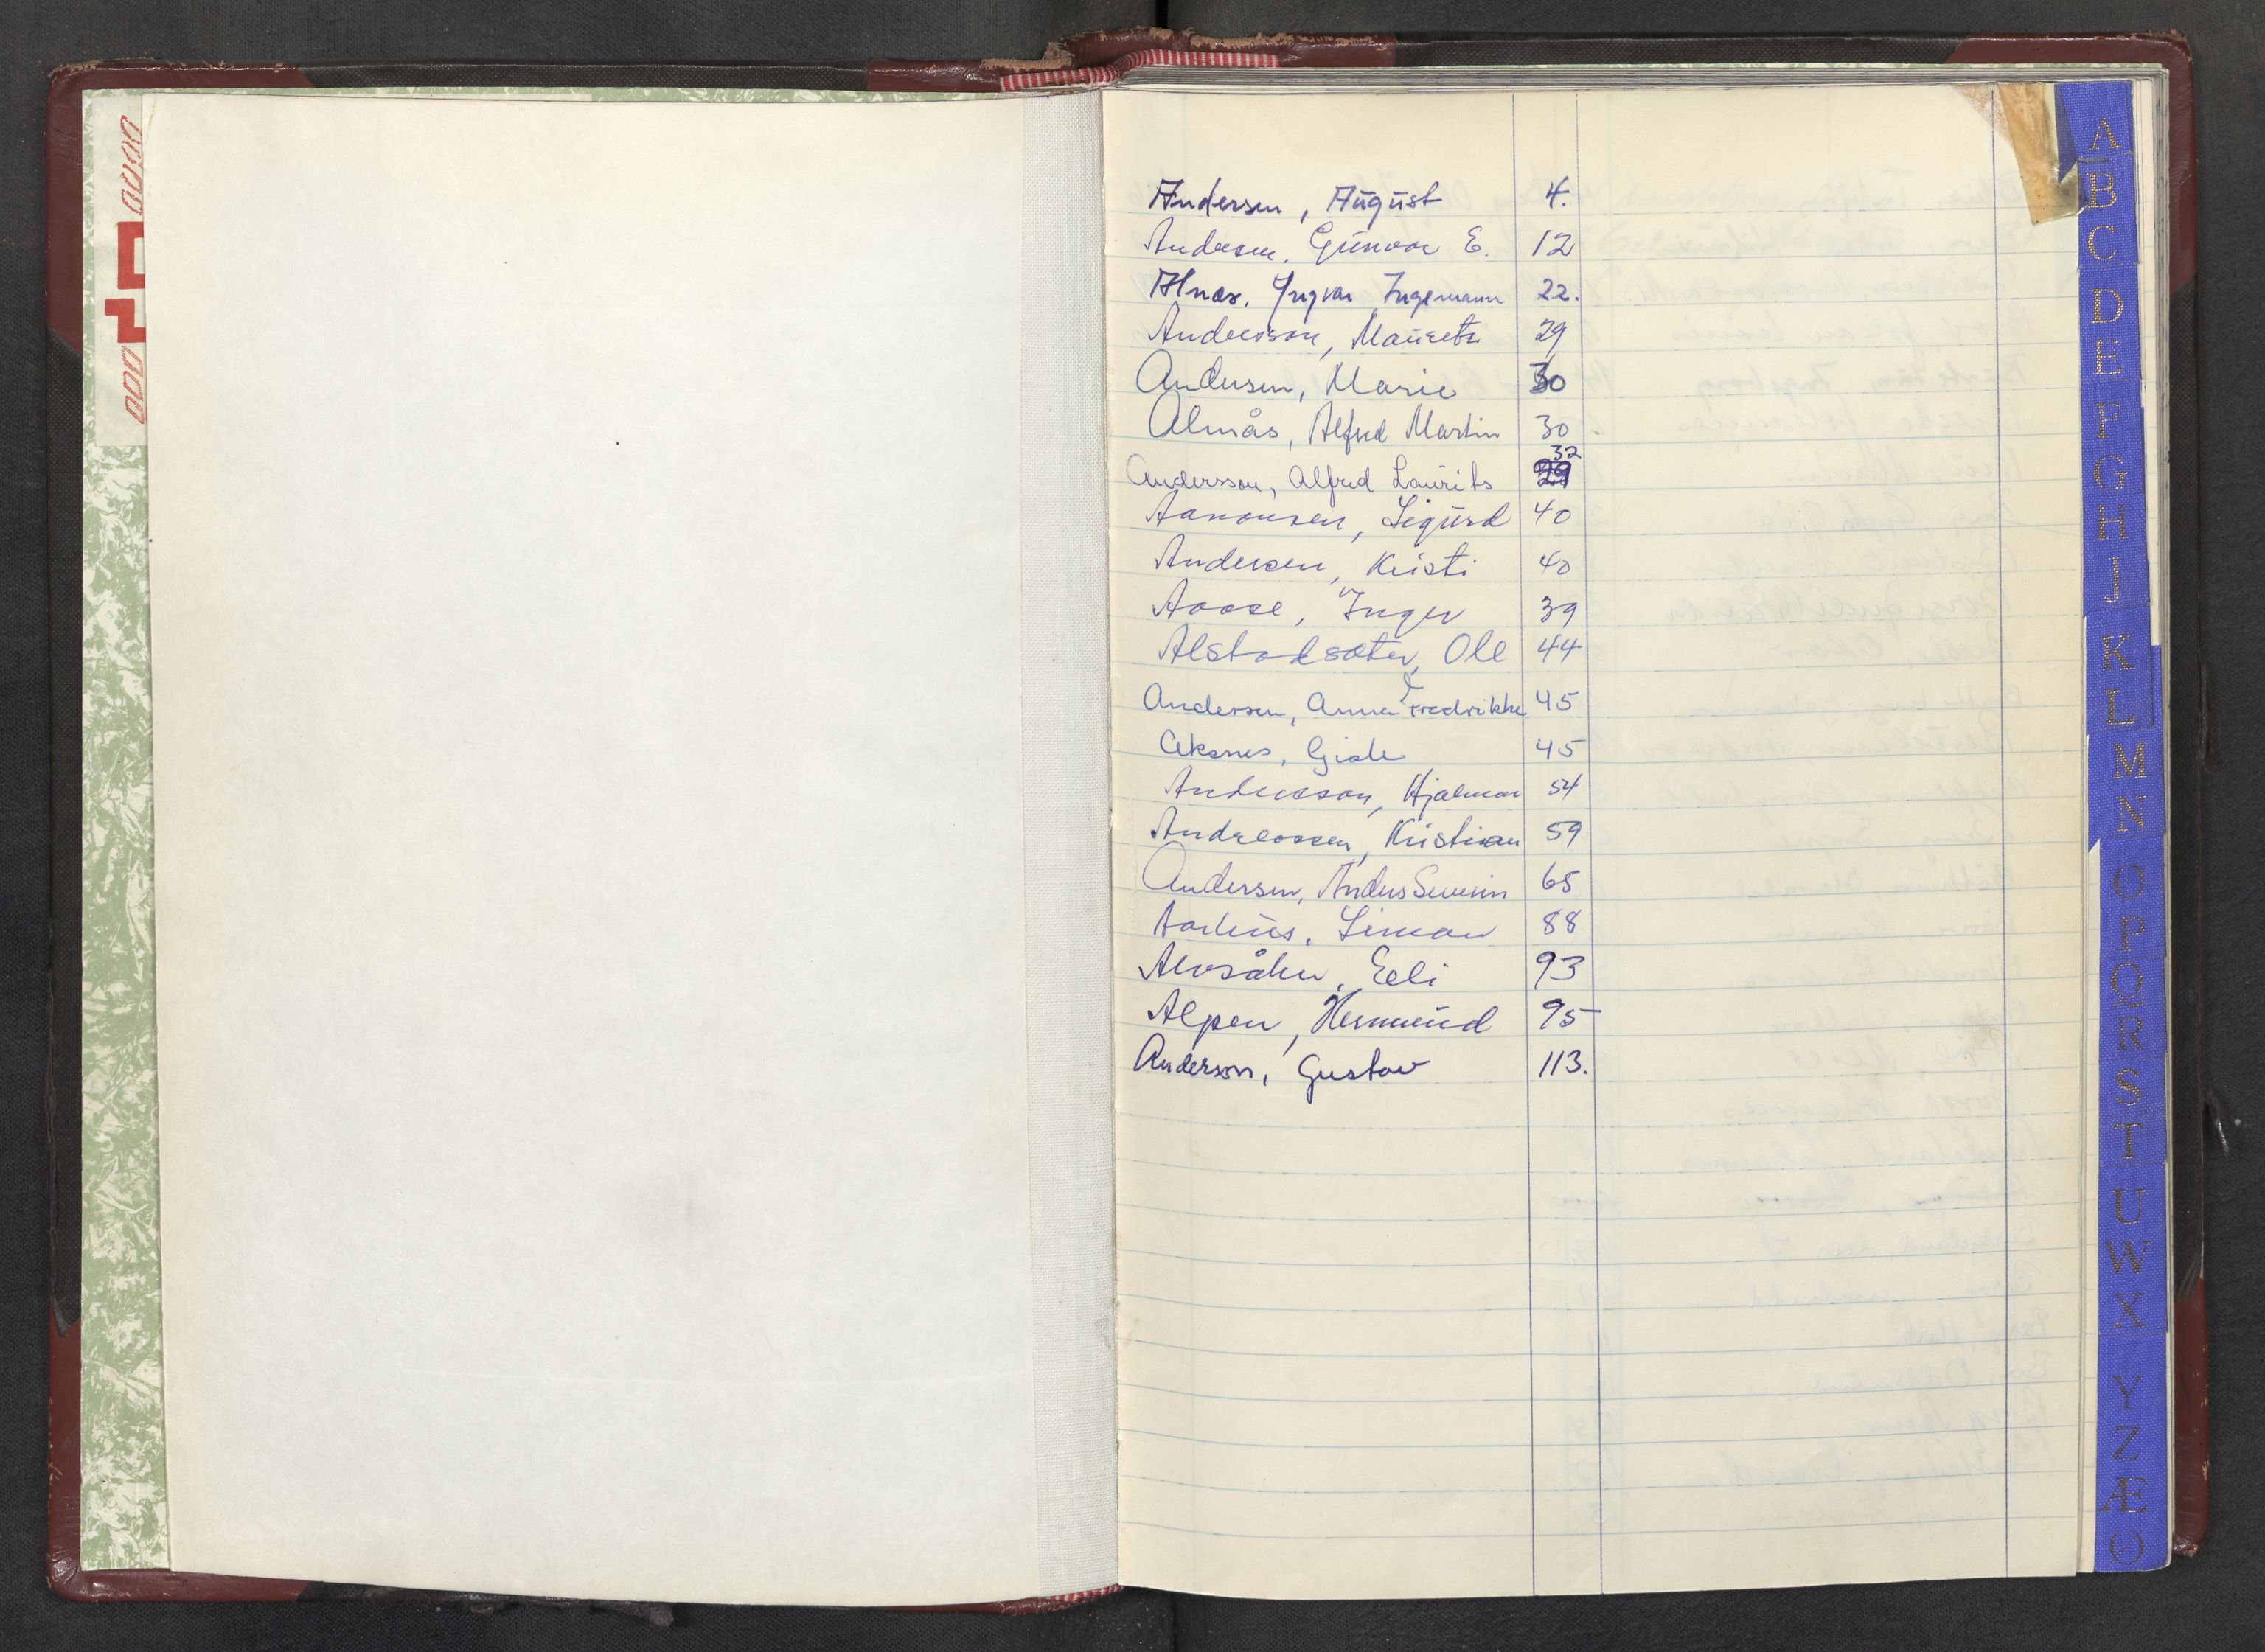 Andersen, August 4.
Andersen, Gunvor E. 12
Alnæs, Yngvar Ingemann 22.
Andersson, Mauritz 29
Andersen, Marie 30
Almås, Alfred Martin 30
32
Andersson, Alfred Laurits 29
Aanonsen, Sigurd 40
Andersen, Kristi 40
Aaase, Inger 39
Alstadsæter, Ole 44
Andersen, Anna Fredrikke 45
Aksnes, Gisle 45
Andersson, Hjalmar 54
Andreassen, Kristian 59
Andersen, Anders Severin 65
Aarhus, Simon 88
Alvsåker, Eli 93
Alpen, Hermund 95
Anderson, Gustav 113.
A
B
C
D
E
F
G
H
J
K
L
M
N
O
P
Q
R
S
T
U
W
X
Y
Z
Æ
Ø